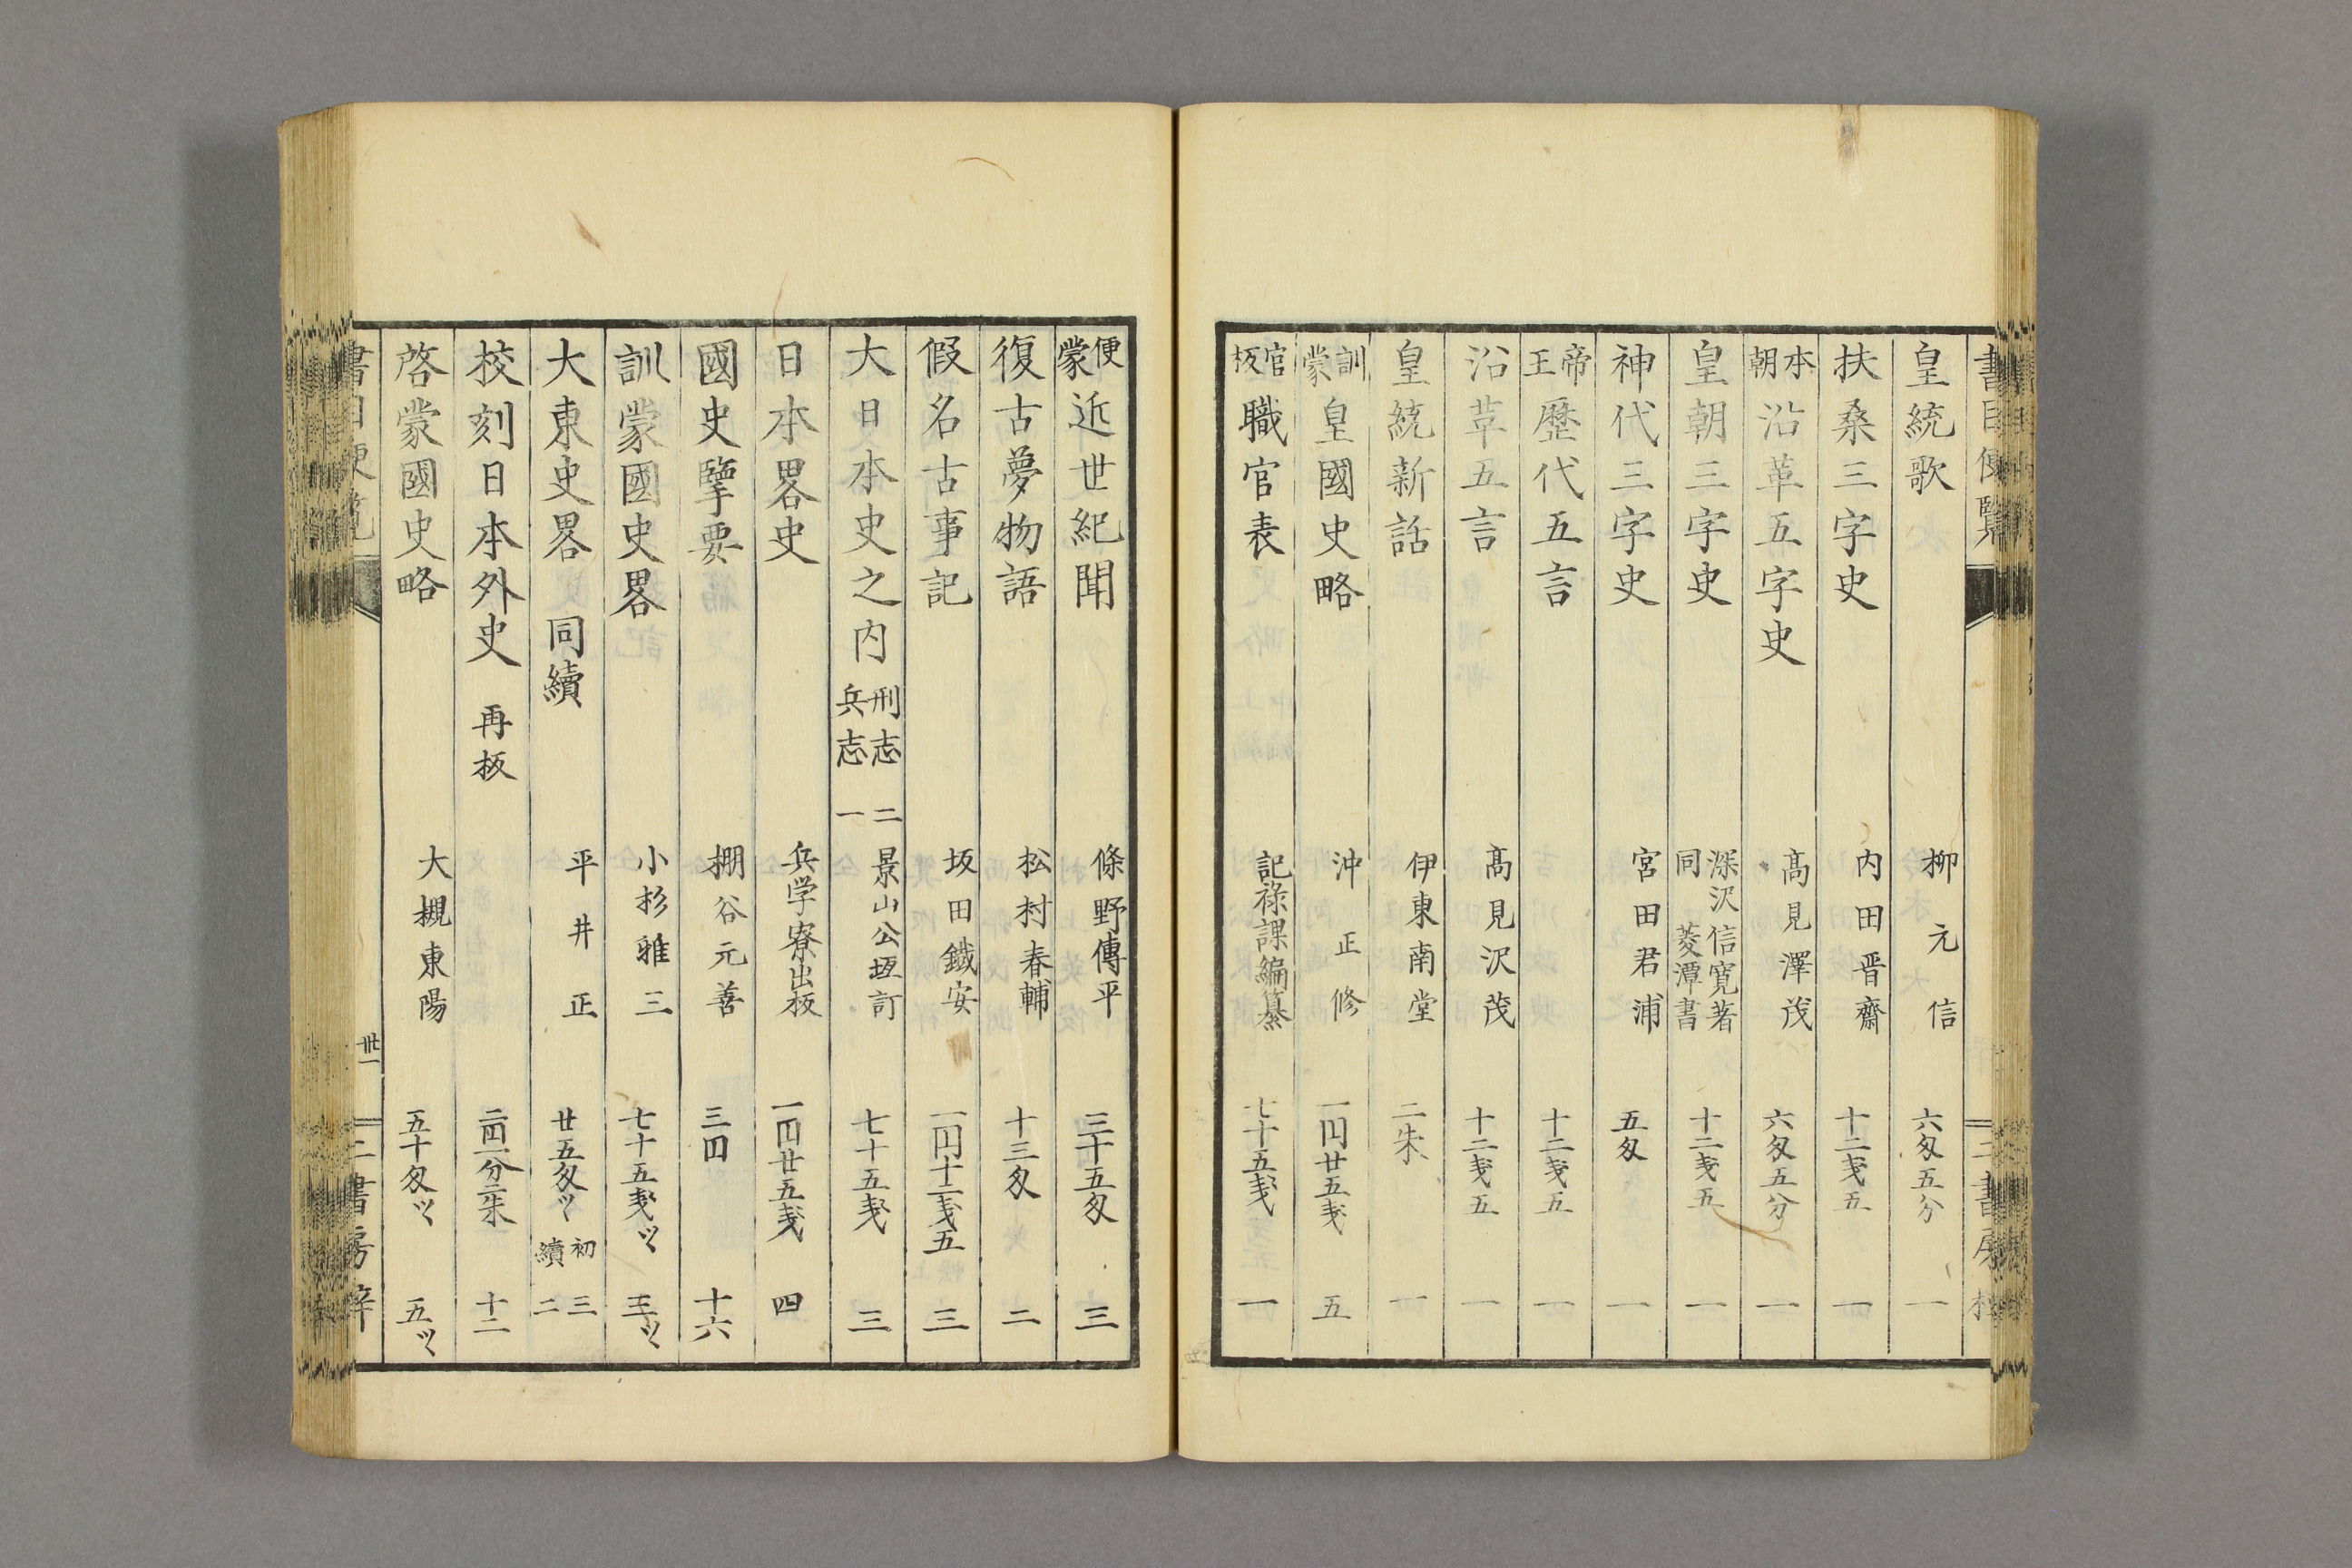 書目便覧
皇統歌 柳元信 六匁五分 一
扶桑三字史 内田晋齋 十二戔五 一
本朝沿革五字史 髙見澤茂 六匁五分 一
皇朝三字史 深沢信寛著 同菱潭書 十二戔五 一
神代三字史 宮田君浦 五匁 一
帝王歷代五言 十二戔五 一
沿革五言 髙見沢茂 十二戔五 一
皇統新話 伊東南堂 二朱 一
訓蒙皇國史略 沖正修 一円廿五戔 五
官板職官表 記祿課編纂 七十五戔 一
便蒙近世紀聞 條野傳平 三十五匁 三
復古夢物語 松村春輔 十三匁 二
假名古事記 坂田鐵安 一円十二戔五 三
大日本史之内 刑志二 兵志一 景山公 訂 七十五戔 三
日本畧史 兵学寮出板 一円廿五戔 四
國史擥要 棚谷元善 三円 十六
訓蒙國史畧 小杉雅三 七十五戔ツヽ 三ツヽ
大東史畧 同續 平井正 廿五匁ツヽ 初三 續二
校刻日本外史 再板 二円一分二朱 十二
啓蒙國史略 大槻東陽 五十匁ツヽ 五ツヽ
書目便覧 卅一 二書房梓